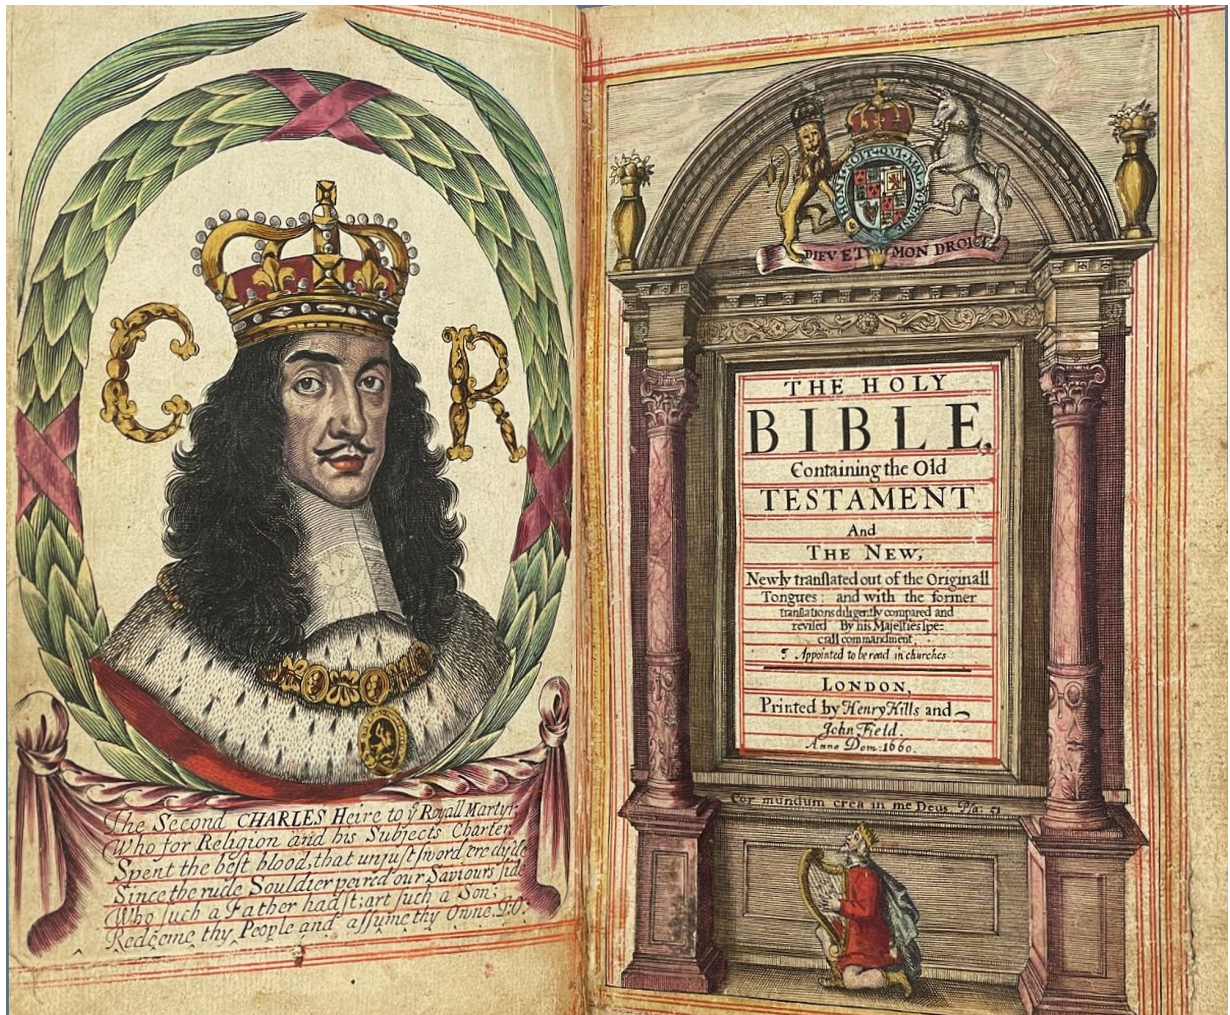 C R
The Second CHARLES Heire to yͤ Royall Martyr
Who for Religion and his Subjects Charter
Spent the best blood, that unjust sword ere dy'de
Since the rude Souldier peirc'd our Saviours side
Who such a Father hadst; art such a Son;
Redeeme thy People and assume thy Owne.
HONI SOIT QVI MAL Y PENSE
DIEV ET MON DROICT
THE HOLY
BIBLE,
Containing the Old
TESTAMENT
And
THE NEW,
Newly tranſlated out of the Originall
Tongues: and with the former
tranſlations diligently compared and
reviſed By his Majeſties ſpe⸗
ciall commandment
¶ Appointed to be read in churches
LONDON,
Printed by Henry Hills and
John Field.
Anno Dom: 1660.
Cor mundum crea in me Deus. Psa: 51